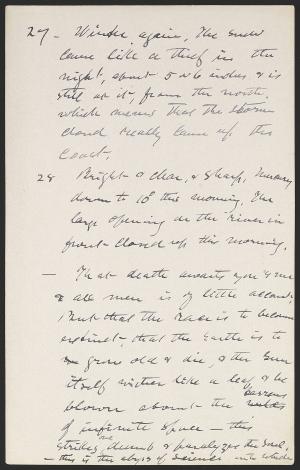 27 - Winter again, The snow
came like a thief in the
night, about 5 or 6 inches & is
still at it, from the north.
which means that the storm
cloud really came up the
Coast.
28 Bright & clear, & sharp, Mercury
down to 10° this morning. The
large opening in the river in
front closed up this morning.
— That death awaits you & me
& all men is of little account,
But that the race is to become
extinct, that the earth is to
grow old & die, & the sun
itself wither like a leaf & be
blown about the barrens
of infinite space — this
strikes one dumb & paralyzes the soul.
— this is the abyss of science - into which